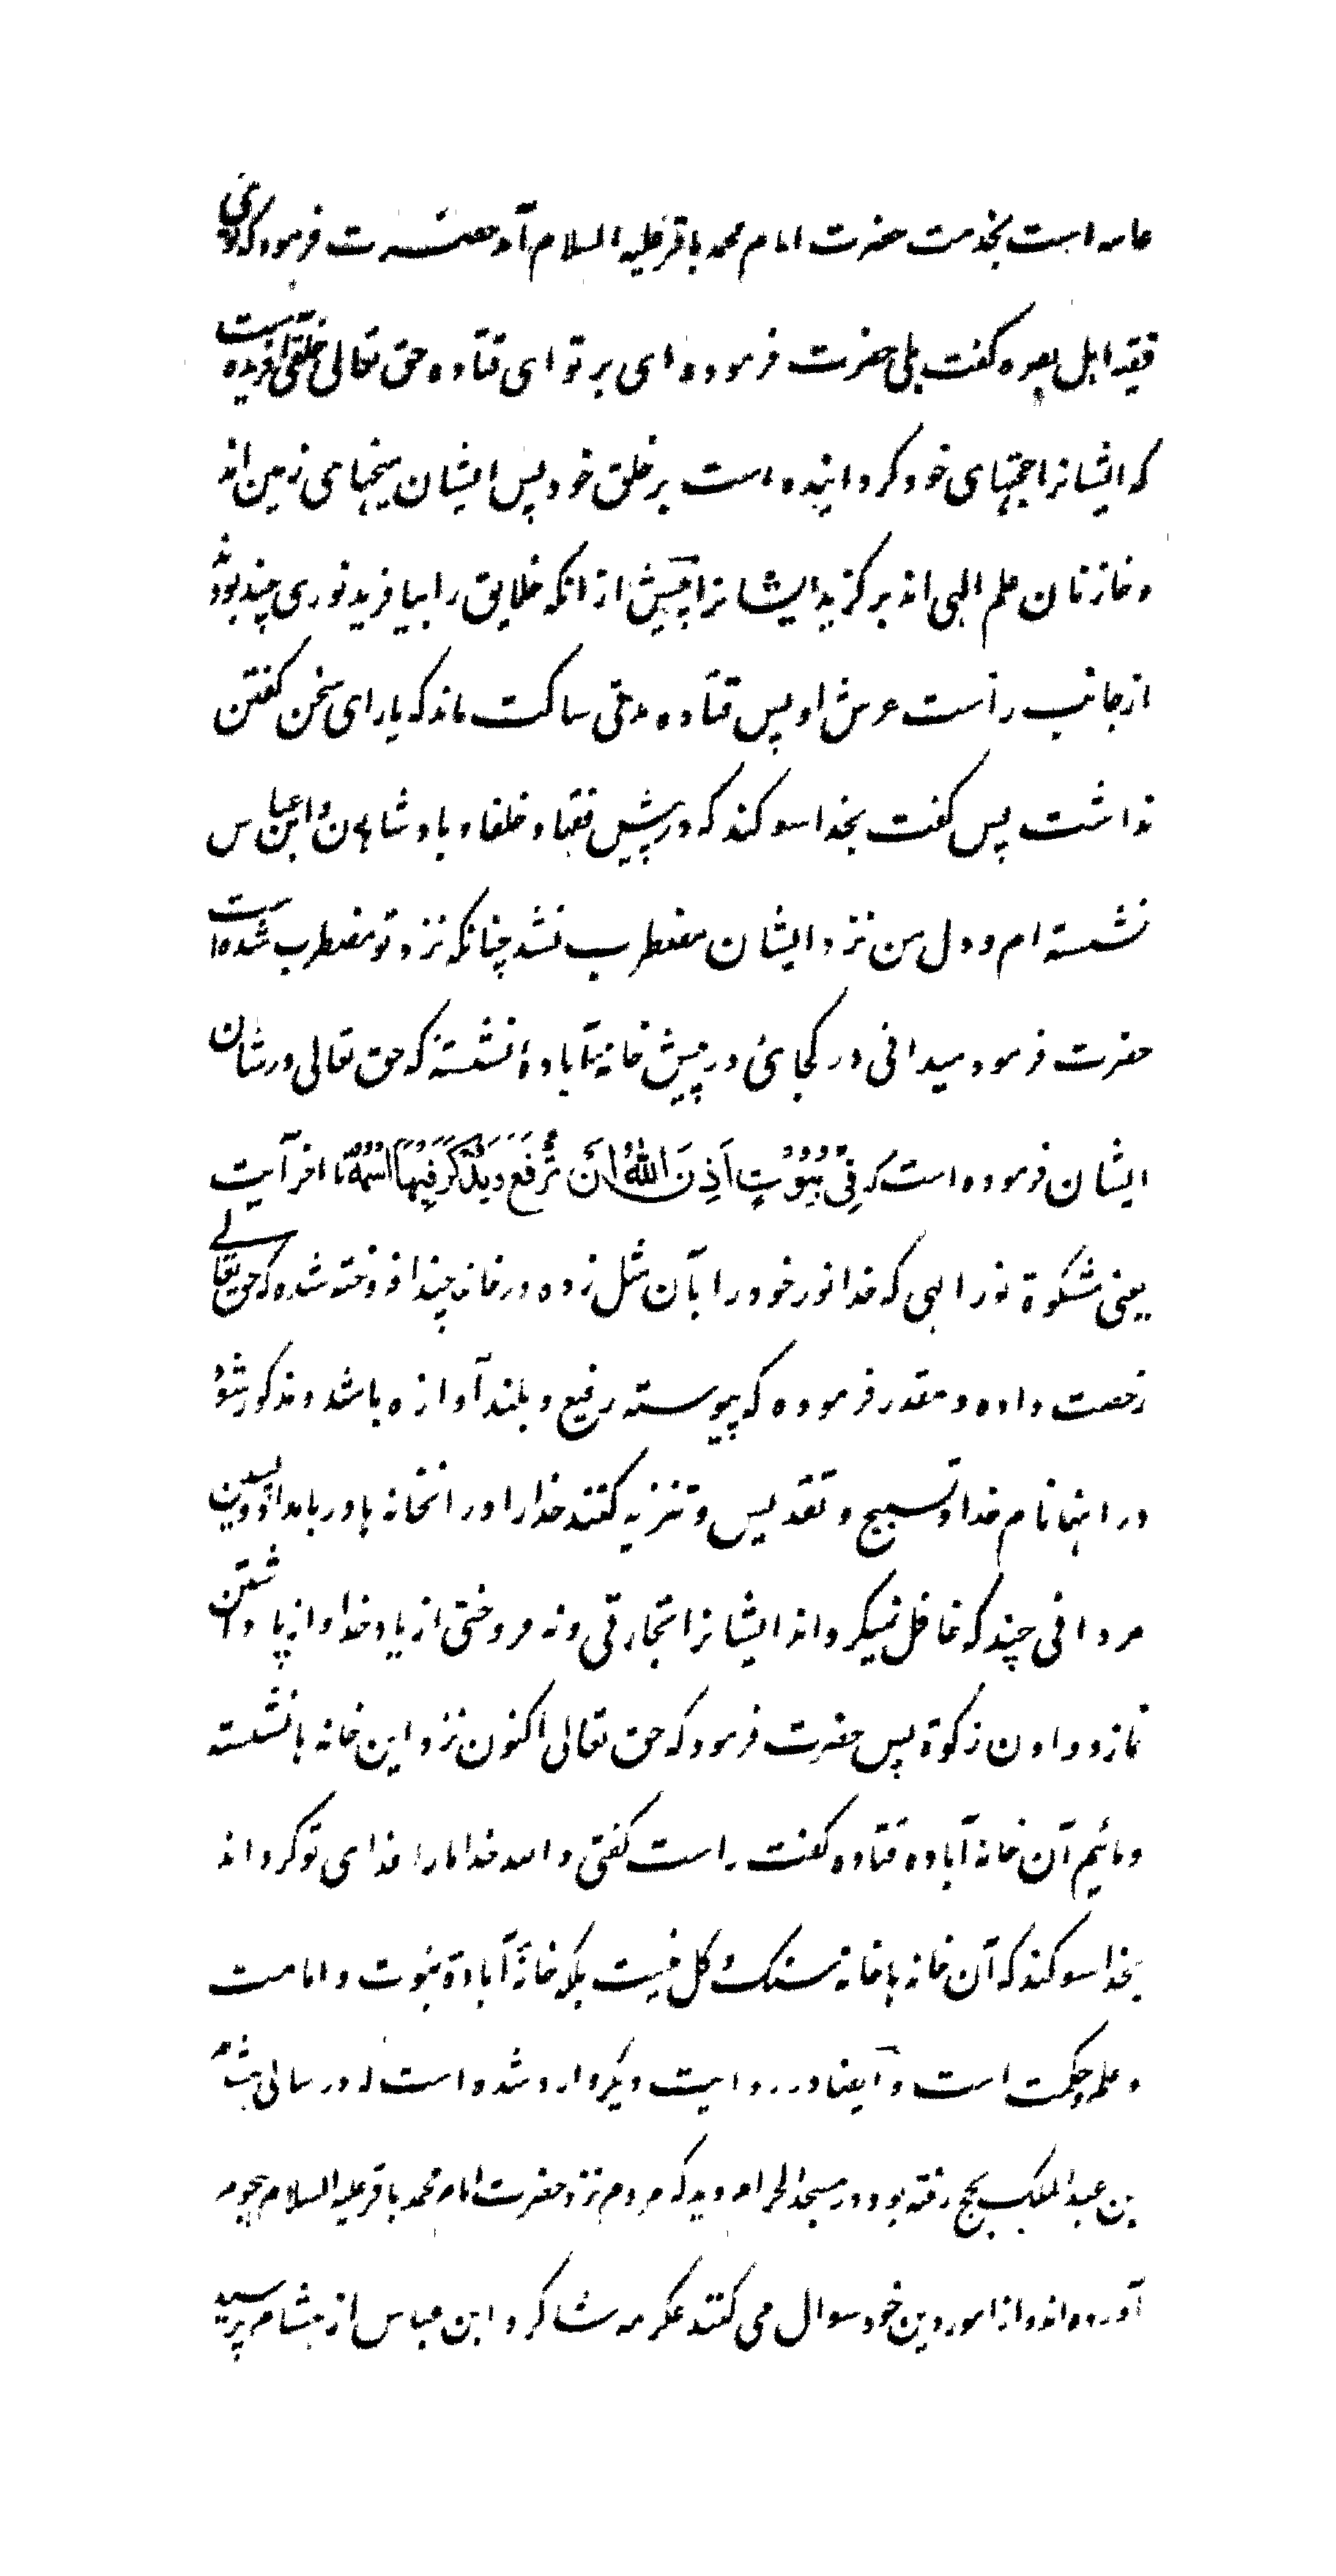 عامه است بخدمت حضرت امام محمد باقر علیه السلام آمد حضرت فرمود که توئی
فقیه اهل بصره گفت بلی حضرت فرمود وای بر تو ای قتاده حق تعالی خلقی آفریده است
که ایشانرا حجتهای خود گردانیده است بر خلق خود پس ایشان میخهای زمین اند
و خازنان علم الهی اند برگزید ایشانرا پیش از انکه خلایق را بیافریند نوری چند بودند
از جانب راست عرش او پس قتاده مدتی ساکت ماند که یارای سخن گفتن
نداشت پس گفت بخدا سوگند که در پیش فقها و خلفا و پادشاهان و ابن عباس
نشسته ام و دل من نزد ایشان مضطرب نشد چنانکه نزد تو مضطرب شده است
حضرت فرمود میدانی در کجائی در پیش خانه آباده نشسته که حق تعالی در شان
ایشان فرموده است که فِی بُیُوتٍ اَذِنَ اللهُ اَن تُرفَعَ وَیُذکَرَ فِیهَا اسمُهُ تا اخر آیت
یعنی مشکوة نور الهی که خدا نور خود را بآن مثل زده در خانه چند افروخته شده که حق تعالی
رخصت داده و مقدر فرموده که پیوسته رفیع و بلند آوازه باشد و مذکور شود
در انها نام خدا و تسبیح و تقدیس و تنزیه کنند خدا را در انخانه ها در بامداد و پسین
مردانی چند که غافل نمیگرداند ایشانرا تجارتی و نه فروختی از یاد خدا و از بپا داشتن
نماز و دادن زکوة پس حضرت فرمود که حق تعالی اکنون نزد این خانه ها نشسته
و مائیم آن خانه آباده قتاده گفت راست گفتی والله خدا مارا فدای تو گرداند
بخدا سوگند که آن خانه ها خانه سنگ و گل نیست بلکه خانهٔ آبادهٔ نبوت و امامت
و علم و حکمت است و ایضا در روایت دیگر وارد شده است که در سالی هشام
بن عبد الملک بحج رفته بود در مسجد الحرام دید که مردم نزد حضرت امام محمد باقر علیه السلام هجوم
آورده اند و از امور دین خود سوال می کنند عکرمه شاگرد ابن عباس از هشام پرسید